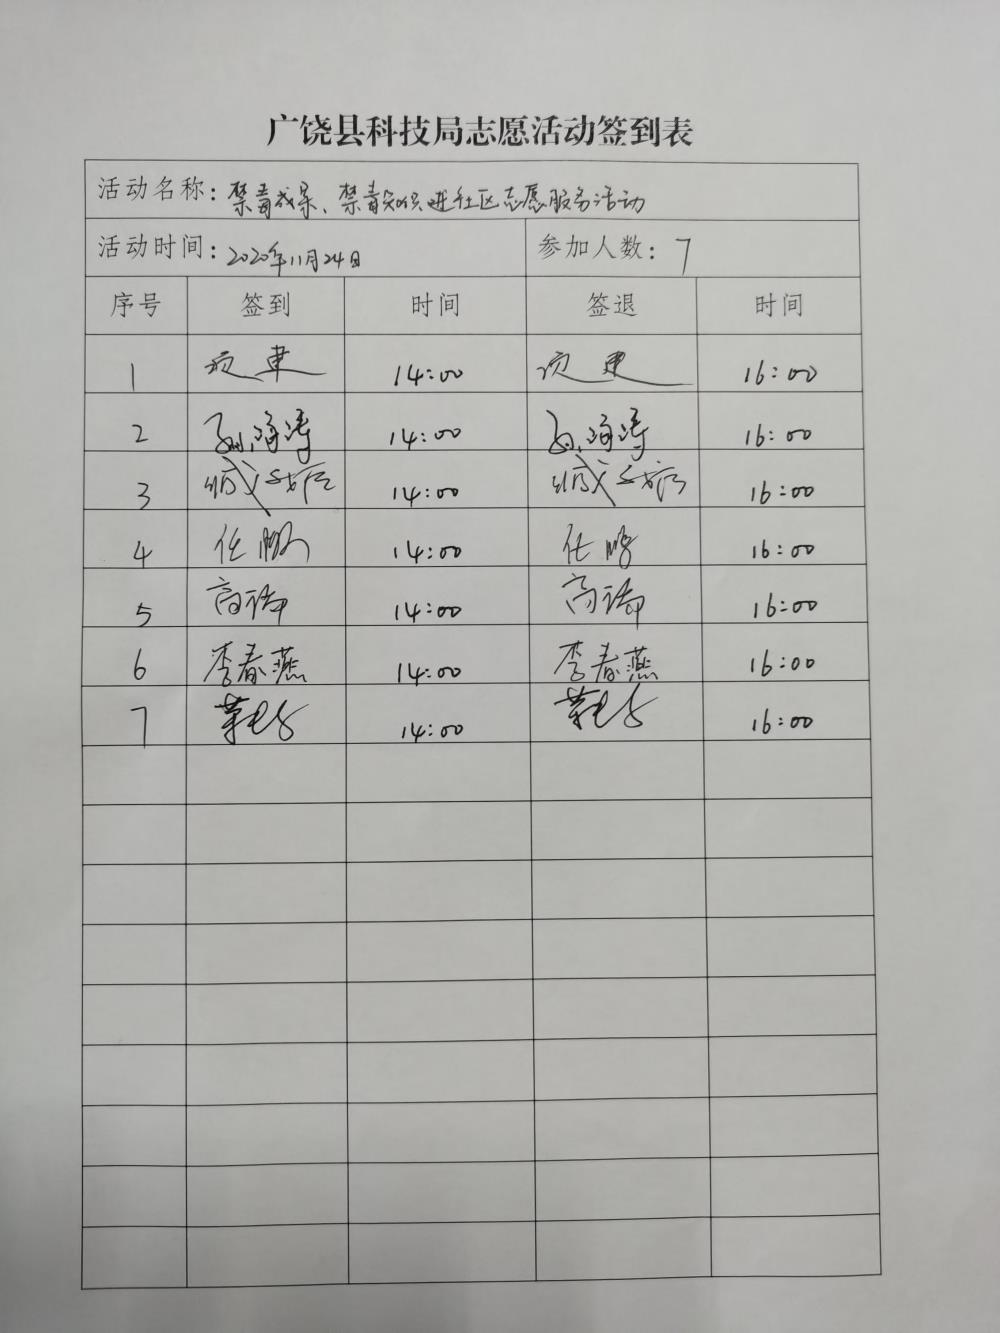 广饶县科技局志愿活动签到表
活动名称：禁毒成果、禁毒知识进社区志愿服务活动
活动时间：2020年11月24日 参加人数：7
序号 签到 时间 签退 时间
1 14:00 16:00
2 孙海涛 14:00 孙海涛 16:00
3 14:00 16:00
4 任鹏 14:00 任鹏 16:00
5 高 14:00 高 16:00
6 李春燕 14:00 李春燕 16:00
7 14:00 16:00